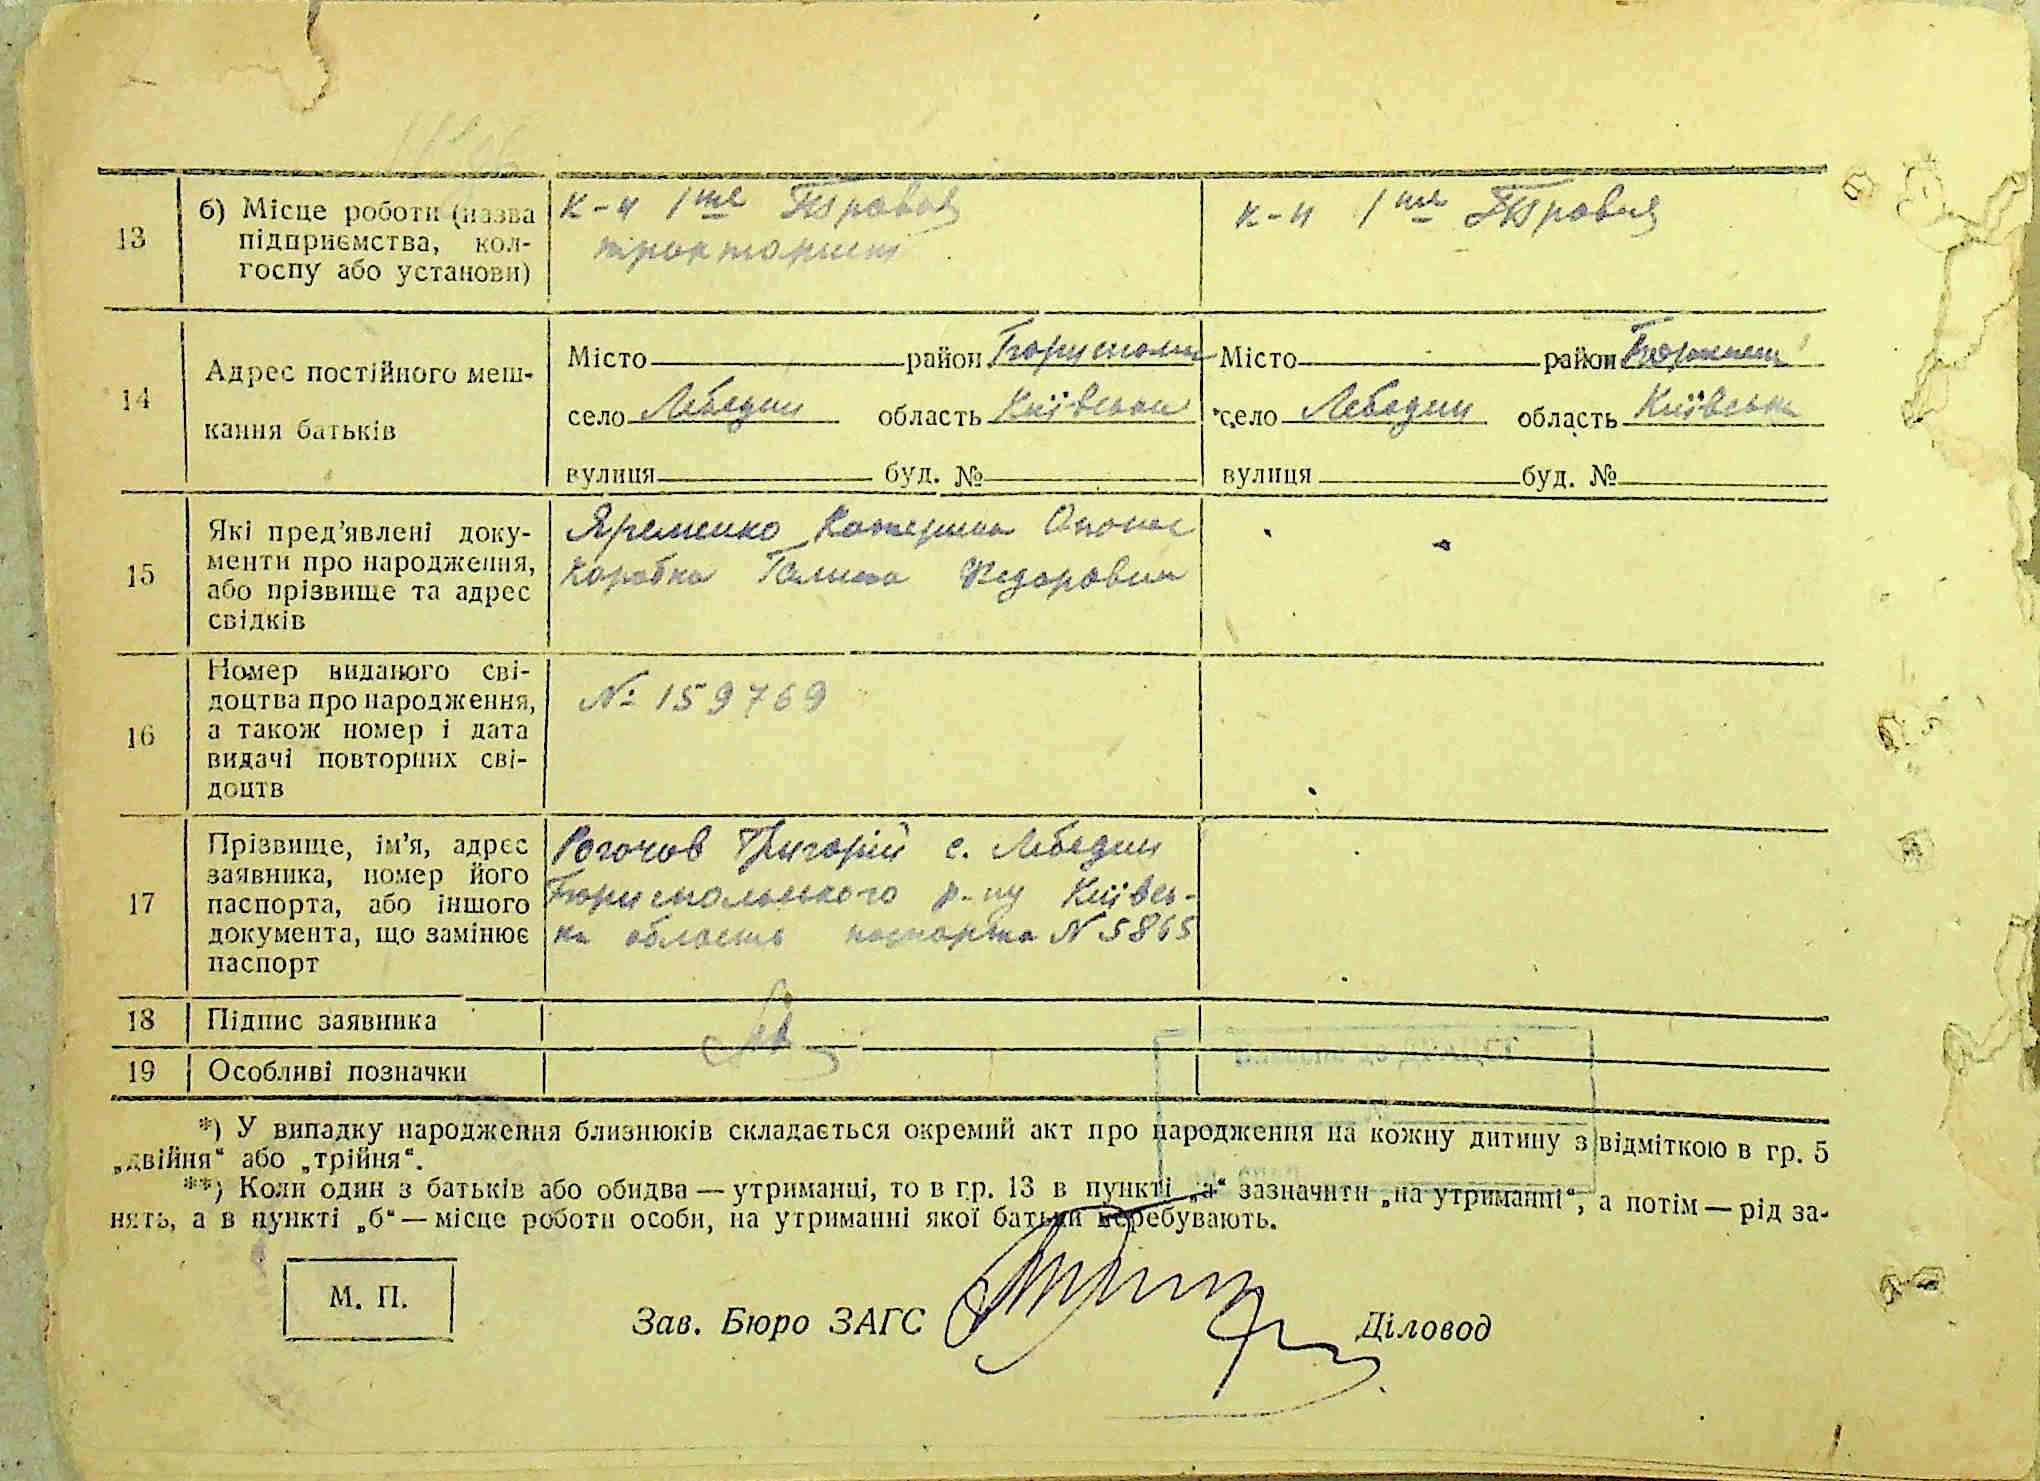 13
б) Місце роботи (назва
підприємства, кол-
госпу або установи)
к-п 1ше Травня
тракторист
к-п 1ше Травня
14
Адрес постійного меш-
кання батьків
Місто район Бориспіль
село Лебедин область Київська
вулиця буд. №
Місто район
село Лебедин область Київськ
вулиця буд. №
15
Які пред'явлені доку-
менти про народження,
або прізвище та адрес
свідків
Яременко Катерина Опонас
Коробка Галина Федоровна
16
Номер виданого сві-
доцтва про народження,
а також номер і дата
видачі повторних сві-
доцтв
№ 159769
17
Прізвище, ім'я, адрес
заявника, номер його
паспорта, або іншого
документа, що замінює
паспорт
Рогочов Григорій с. Лебедин
Бориспольського р-ну Київсь-
ка область паспорта N 5865
18
Підпис заявника
19
Особливі позначки
*) У випадку народження близнюків складається окремий акт про народження на кожну дитину з відміткою в гр. 5
„двійня“ або „трійня“.
**) Коли один з батьків або обидва — утриманці, то в гр. 13 в пункті „а“ зазначити „на утриманні“, а потім — рід за-
нять, а в пункті „б“ — місце роботи особи, на утриманні якої батьки перебувають.
М. П.
Зав. Бюро ЗАГС
Діловод